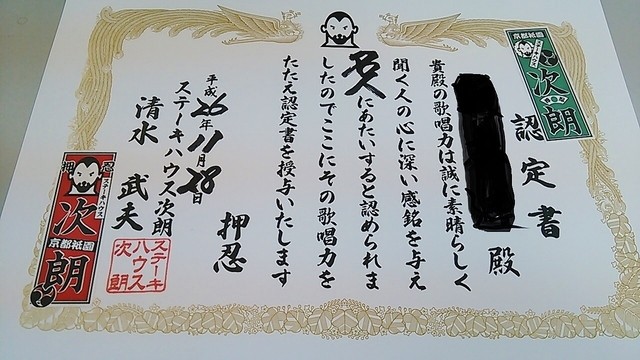 認定書
殿
貴殿の歌唱力は誠に素晴らしく
聞く人の心に深い感銘を与え
名人にあたいすると認められま
したのでここにその歌唱力を
たたえ認定書を授与いたします
押忍
平成26年11月28日
ステーキハウス次朗
清水 武夫
ステーキ
ハウス
次朗
京都祇園
ステーキハウス
次朗
押忍
ステーキハウス
次朗
京都祇園